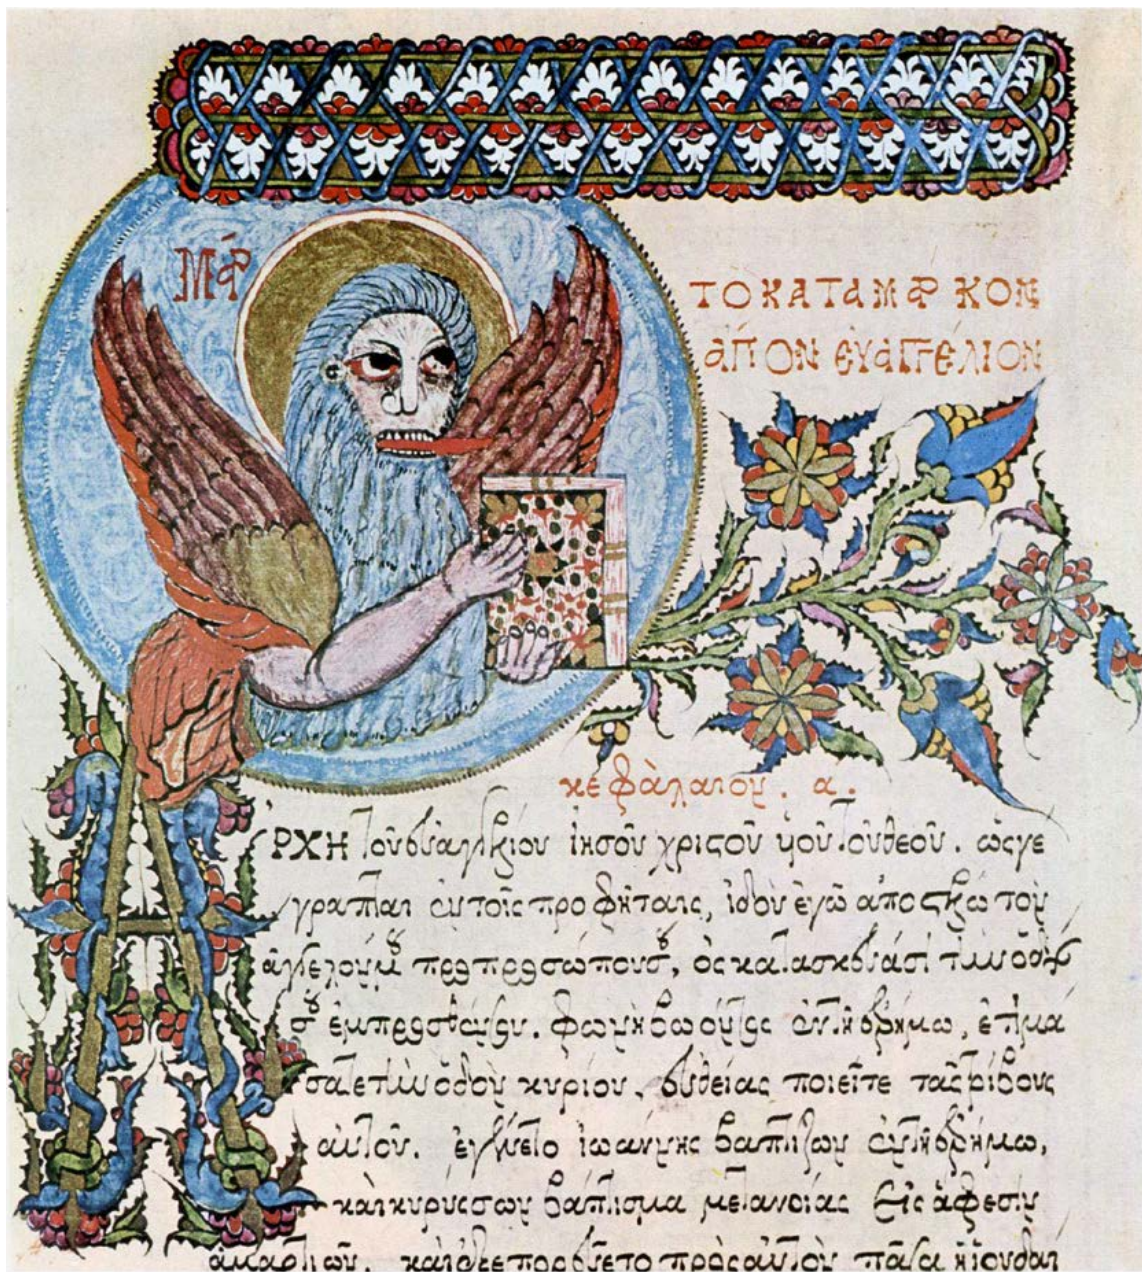 ΜΆΡ
ΤῸ ΚΑΤΑ ΜΑΡΚΟΝ
ἉΓΙΟΝ ΕΥΑΓΓΈΛΙΟΝ
κεφάλαιον . α .
ἈΡΧΗ τοῦ εὐαγγελίου ἰησοῦ χριστοῦ υἱοῦ τοῦ θεοῦ . ὡς γέ
γραπται ἐν τοῖς προφήταις, ἰδοὺ ἐγὼ ἀποστέλλω τὸν
ἄγγελόν μου πρὸ προσώπου σου, ὃς κατασκευάσει τὴν ὁδόν
σου ἔμπροσθέν σου . φωνὴ βοῶντος ἐν τῇ ἐρήμω, ἑτοιμά
σατε τὴν ὁδὸν κυρίου, εὐθείας ποιεῖτε τὰς τρίβους
αὐτοῦ . ἐγένετο ἰωάννης βαπτίζων ἐν τῇ ἐρήμω,
καὶ κηρύσσων βάπτισμα μετανοίας εἰς ἄφεσιν
ἁμαρτιῶν . καὶ ἐξεπορεύετο πρὸς αὐτὸν πᾶσα ἡ ἰουδαί